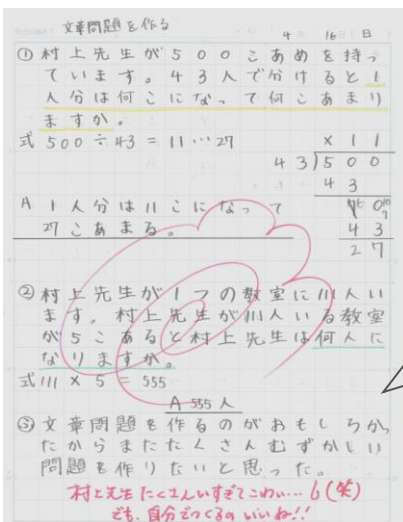 文章問題を作る
4月 16日 日
①村上先生が500こあめを持っ
ています。43人で分けると1
人分は何こになって何こあまり
ますか。
式 500÷43=11…27
×11
43)500
43
A 1人分は11こになって
27こあまる。
43
27
②村上先生が1つの教室に111人い
ます。村上先生が111人いる教室
が5こあると村上先生は何人に
なりますか。
式111×5=555
A 555人
③文章問題を作るのがおもしろかっ
たからまたたくさんむずかしい
問題を作りたいと思った。
村上先生たくさんいすぎてこわい…(笑)
でも、自分でつくるのいいね!!